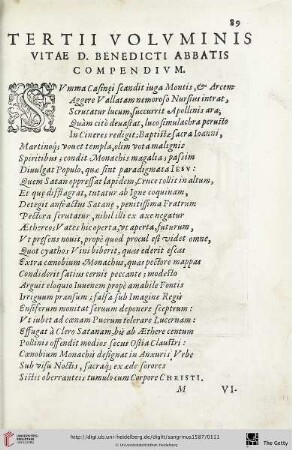 89
TERTII VOLVMINIS
VITAE D. BENEDICTI ABBATIS
COMPENDIVM.
SVmma Casinęi scandit iuga Montis, & Arcem
Aggere Vallatam nemoroso Nursius intrat,
Scrutatur lucum, succurrit Apollinis ara,
Quàm citò deuastat, luco simulachra peruso
In Cineres redigit: Baptistę sacra Ioanni,
Martinoq; vouet templa, olim vota malignis
Spiritibus; condit Monachis magalia; passim
Diuulgat Populo, quę sint paradigmata IESV:
Quem Satan oppressat lapidem, Cruce tollit in altum,
Et que disflagrat, tutatur ab Igne coquinam,
Detegit anfractus Satanę, penitissima Fratrum
Pectora scrutatur, nihil illi ex axe negatur
Æthereo; Vates hic operta, vt aperta, futurum,
Vt pręsens nouit, propè quod procul est videt omne,
Quot cyathos Vini biberit, quas ederit escas
Extra cœnobium Monachus, quas pectore mappas
Condiderit satius cernis peccante; modesto
Arguit eloquio Iuuenem propè amabile Fontis
Irriguum pransum; falsa sub Imagine Regis
Ensiferum monitat seruum deponere sceptrum:
Vt iubet ad cœnam Puerum tolerare Lucernam:
Effugat à Clero Satanam, hic ab Æthere centum
Pollinis offendit modios secus Ostia Claustri:
Cœnobium Monachis designat in Anxuris Vrbe
Sub visu Noctis, sacraq; ex æde forores
Sistis oberrantes: tumulo cum Corpore CHRISTI.
M VI-
http://digi.ub.uni-heidelberg.de/diglit/sangrinus1587/0111
© Universitätsbibliothek Heidelberg
The Getty